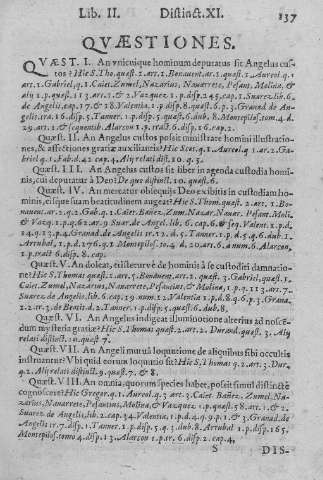 Lib. II. Distinct. XI. 137
QVÆSTIONES.
QVÆST. I. An vnicuique hominum deputatus sit Angelus cus-
tos? Hic S. Tho. quæst. 1. art. 1. Bonauent. ar. 1. quæst. 1. Aureol. q. 1.
art. 1. Gabriel, q. 1. Caiet. Zumel, Nazarius, Nauarrete, Pesant. Molina, &
alij 1. p. quæst. 113. art. 1. & 2 Vazquez 1. p. disp. 245. cap. 1. Suarez lib. 6.
de Angelis, cap. 17. & 18. Valentia 1. p. disp. 8. quæst. 6. p. 3. Granad. de An-
gelis, tra. 16. disp. 5. Tanner 1. p. disp. 5. quæst. 6. dub. 8. Montepilos. tom. 4. d.
29. art. 1. & sequentib. Alarcon 1. p. tract 6. disp. 6. cap. 2.
QVÆST. II. An Angelus custos possit ministrare homini illustratio-
nes, & affectiones gratiæ auxiliantis? Hic Scot. q. 1. Aureol. q. 1. ar. 2. Ga-
briel, q. 1. Fab. d. 42 cap. 4. Alij relati dist. 10. q. 3.
QVÆST. III. An Angelus custos sit liber in agenda custodia homi-
nis, cui deputatur à Deo? De quo distinct. 10. quæst. 6.
QVÆST. IV. An mereatur obiequijs Deo exhibitis in custodiam ho-
minis, eisque suam beatitudinem augeat? Hic S. Thom. quæst. 2. art. 1. Bo-
nauent. ar. 2. q. 2. Gab. q. 1. Caiet. Bañez, Zum. Nazar. Nauar. Pesant. Moli.
& Vazq. 1. p. q. 62. ar. 9 Suar. de Angel. lib. 6. cap. 6 & seq. Valent. 1. p. d.
14. q. 3. p. 4. Granad. de Angelis tr. 12. d. 1. Tanner. 1. p. d. 5. q. 6. dub. 1.
Arrubal, 1. p. d. 176. q. 1 Montepilos. to. 4. d. 20. art. 6. a num. 6. Alarcon,
1. p. tract 6. disp. 8. cap.
QVÆST. V. An doleat, tristeturve de hominis à se custoditi damnatio-
ne? Hic S. Thomas quæst. 1. art. 5. Bonauen. ar. 2. quæst. 3. Gabriel, quæst. 1.
Caiet. Zumel, Nazarius, Nauarrete, Pesantius, & Molina, 1. p. q. 113. ar. 7.
Suarez de Angelis, lib. 6. cap. 19. num. 12. Valentia 1. p. d. 8. q. 6. p. 3. Grana.
2. 2 tr. 3. de Beatit. d. 2. Tanner 1. p. disp. 5. quæst. 6. dub. 8.
QVÆST. VI. An Angelus indigeat illuminatione alterius ad noscen-
dum mysteria gratiæ? Hic S. Thomas quæst. 2. art. 2. Durand. quæst. 3. Alij
relati distinct. 10 quæst. 7.
QVÆST. VII. An Angeli mutuâ loquutione de aliquibus sibi occultis
instruantur? Vbi quid eorum loquutio sit? Hic S. Thomas q. 2. art. 3. Dur-
q. 2. Alij relati distinct. 9. quæst. 7. & 8.
QVÆST. VIII. An omnia, quorum species habet, possit simul distinctè
cognoscere? Hic Gregor. q. 1. Aureol. q. 3. art. 3. Caiet. Bañez, Zumel, Na-
zarius, Nauarrete, Pesantius, Molina, & Vazquez 1. p. quæst. 58. art. 1. & 2
Suarez de Angelis, lib. 2. cap. 34. Valentia, 1. p. disp. 4. q. 9. p. 1. & 2. Granad. de An-
gelis tr. 7. disp. 1. Tanner. 1. p. disp. 5. q. 3. dub. 8. Arrubal 1. p. disp. 165.
Montepilos. tomo 4. disp. 13. Alarcon 1. p. tr. 6. disp. 2. cap. 4.
S DIS-